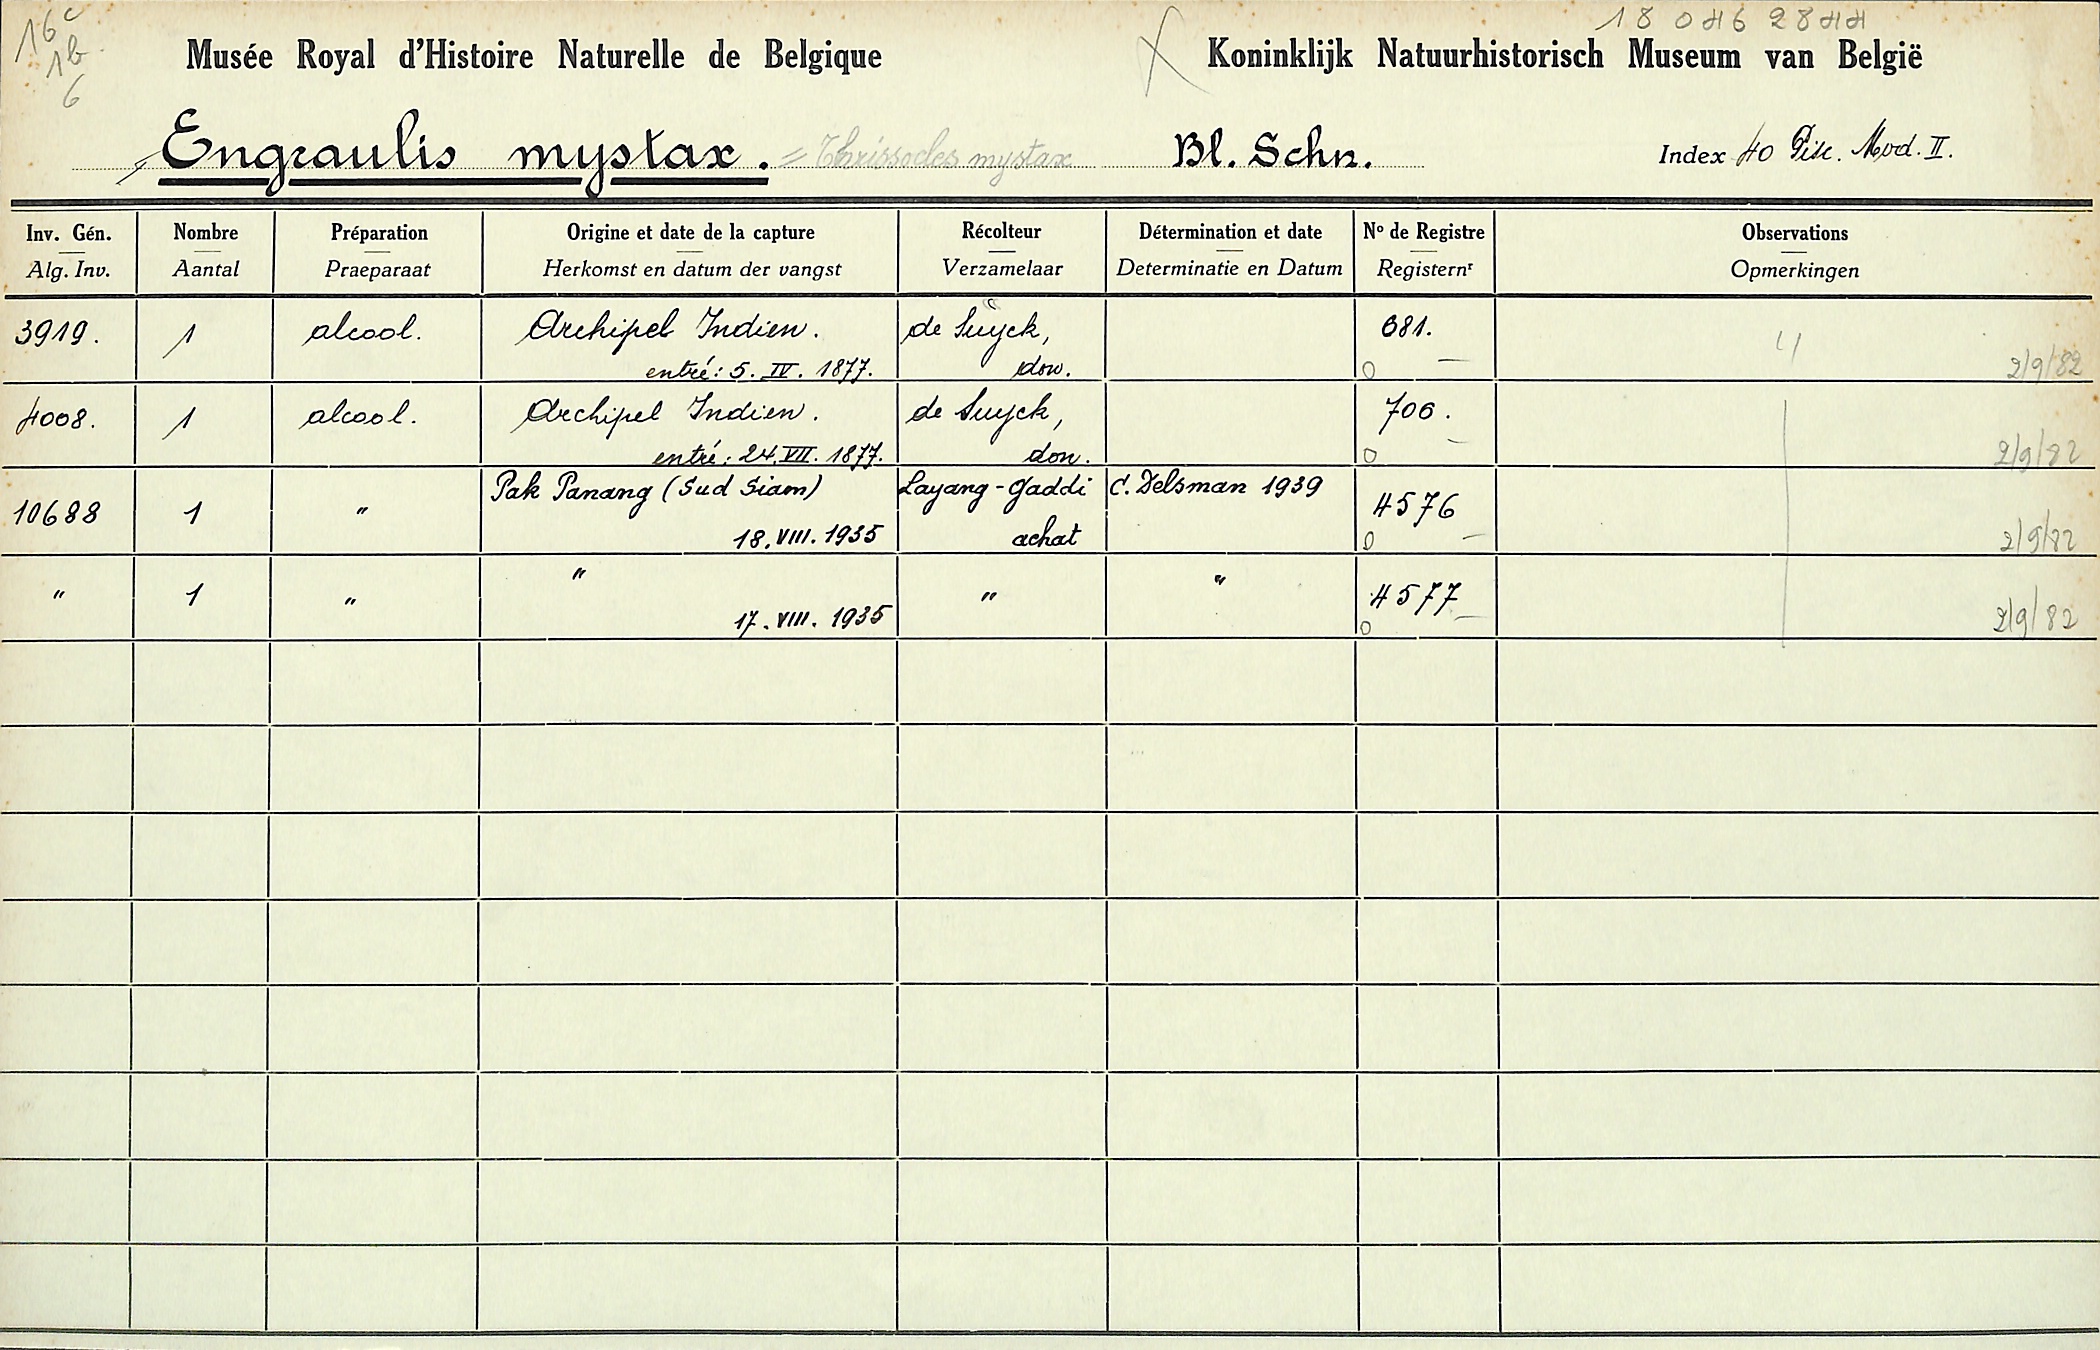 16c
1b
6
18 046 2844
Musée Royal d'Histoire Naturelle de Belgique
Koninklijk Natuurhistorisch Museum van België
Engraulis mystax. = Thrissocles mystax Bl. Schn. Index 40 Pisc. Mvd. II.
Inv. Gén. Nombre Préparation Origine et date de la capture Récolteur Détermination et date No de Registre Observations
Alg. Inv. Aantal Praeparaat Herkomst en datum der vangst Verzamelaar Determinatie en Datum Registernr Opmerkingen
3919. 1 alcool. Archipel Indien. de Suyck, 681. 4
entré: 5. IV. 1877. don. 0 2/9/82
4008. 1 alcool. Archipel Indien. de Suyck, 706.
entré: 24. VII. 1877. don. 0 2/9/82
10688 1 " Pak Panang (Sud Siam) Layang-Gaddi C. Delsman 1939 4576
18. VIII. 1935 achat 0 2/9/82
" 1 " " " " 4577
17. VIII. 1935 0 2/9/82